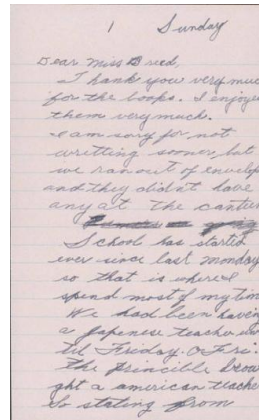 1 Sunday
Dear Miss Breed,
Thank you very muc
for the books. I enjoye
them very much.
I am sory for not
writting sooner, but
we ran out of envelop
and they didn't have
any at the cantee
School has started
ever since last monday
so that is where I
spend most of my tim
We had been havin
a Japenese teacher
til Friday. O Fri.
the principle brou
ght a american teache
So stating from